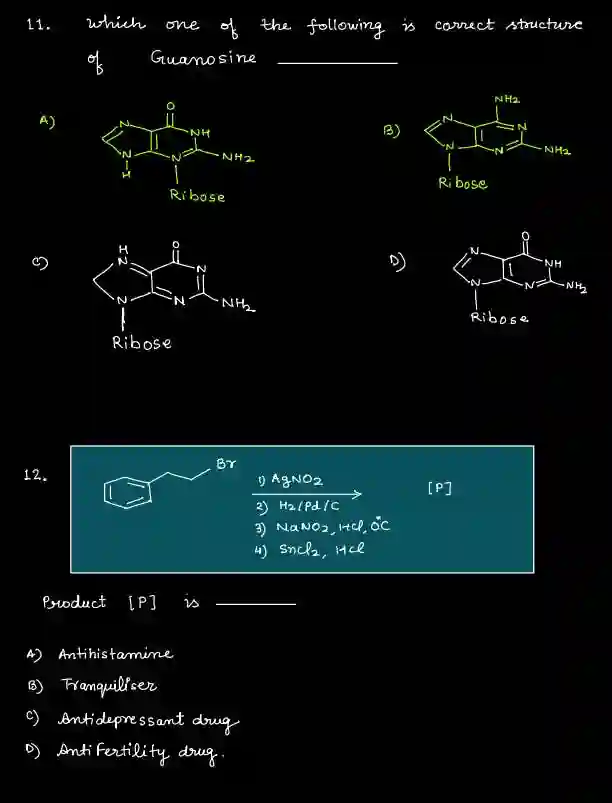 11. which one of the following is correct structure
of Guanosine ________
A) N N H O NH N NH2 Ribose
B) N N NH2 N N NH2 Ribose
C) H N N O N N NH2 Ribose
D) N N O NH N NH2 Ribose
12. Br 1) AgNO2 [P]
2) H2/Pd/C
3) NaNO2, HCl, 0°C
4) SnCl2, HCl
Product [P] is ________
A) Antihistamine
B) Tranquiliser
C) Antidepressant drug
D) Antifertility drug.